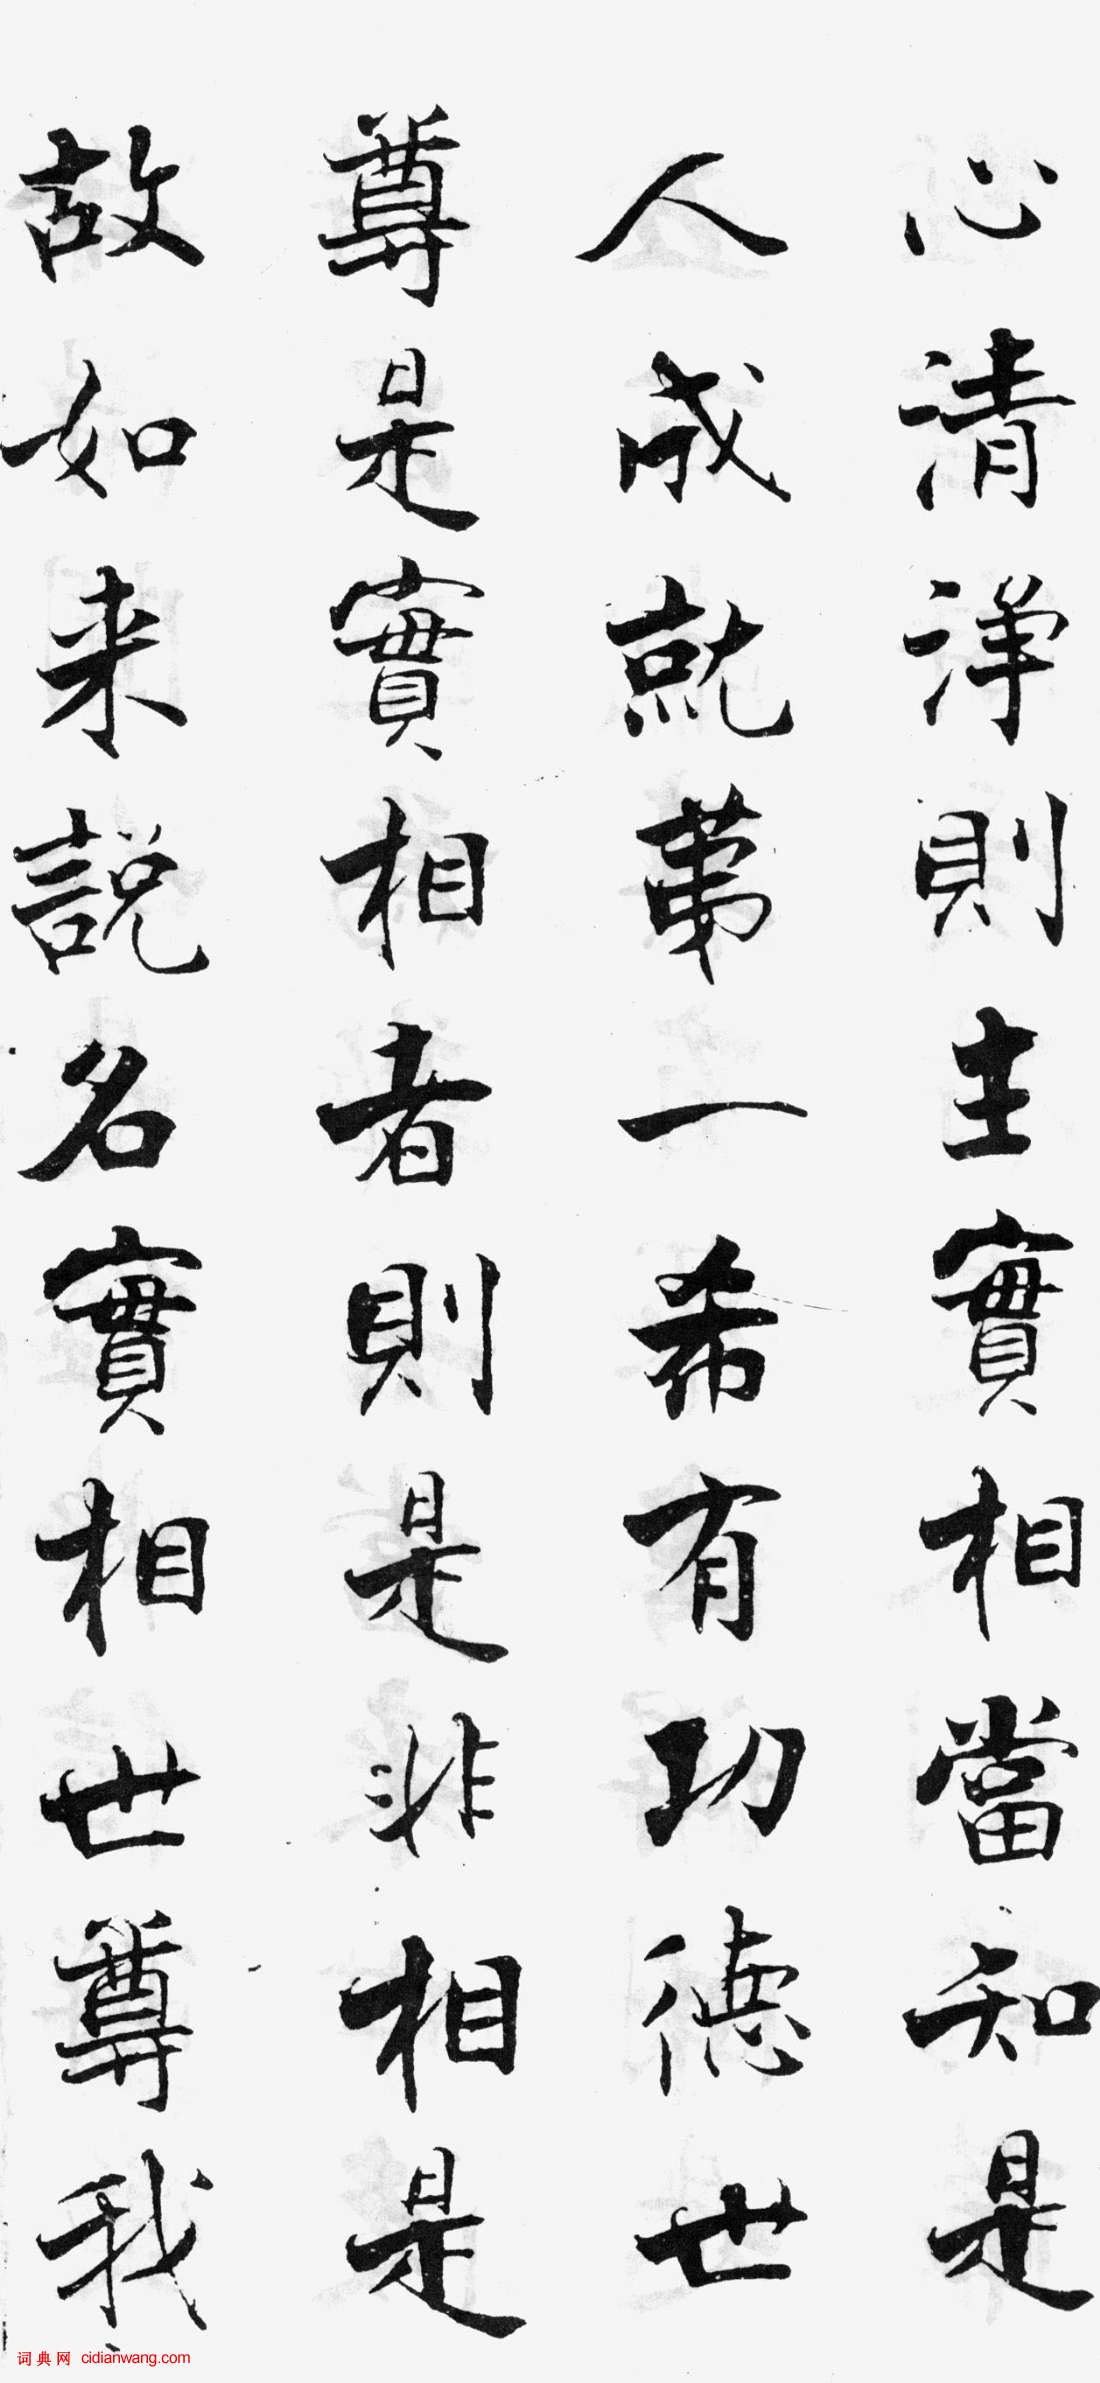 心清淨則主實相當知是
人成就苐一希有功德世
尊是實相者則是非相是
故如来說名實相世尊我
词典网 cidianwang.com